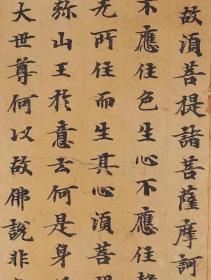 故湏菩提諸菩薩摩訶
不應住色生心不應住
无所住而生其心湏菩
弥山王於意云何是身
大世尊何以故佛說非